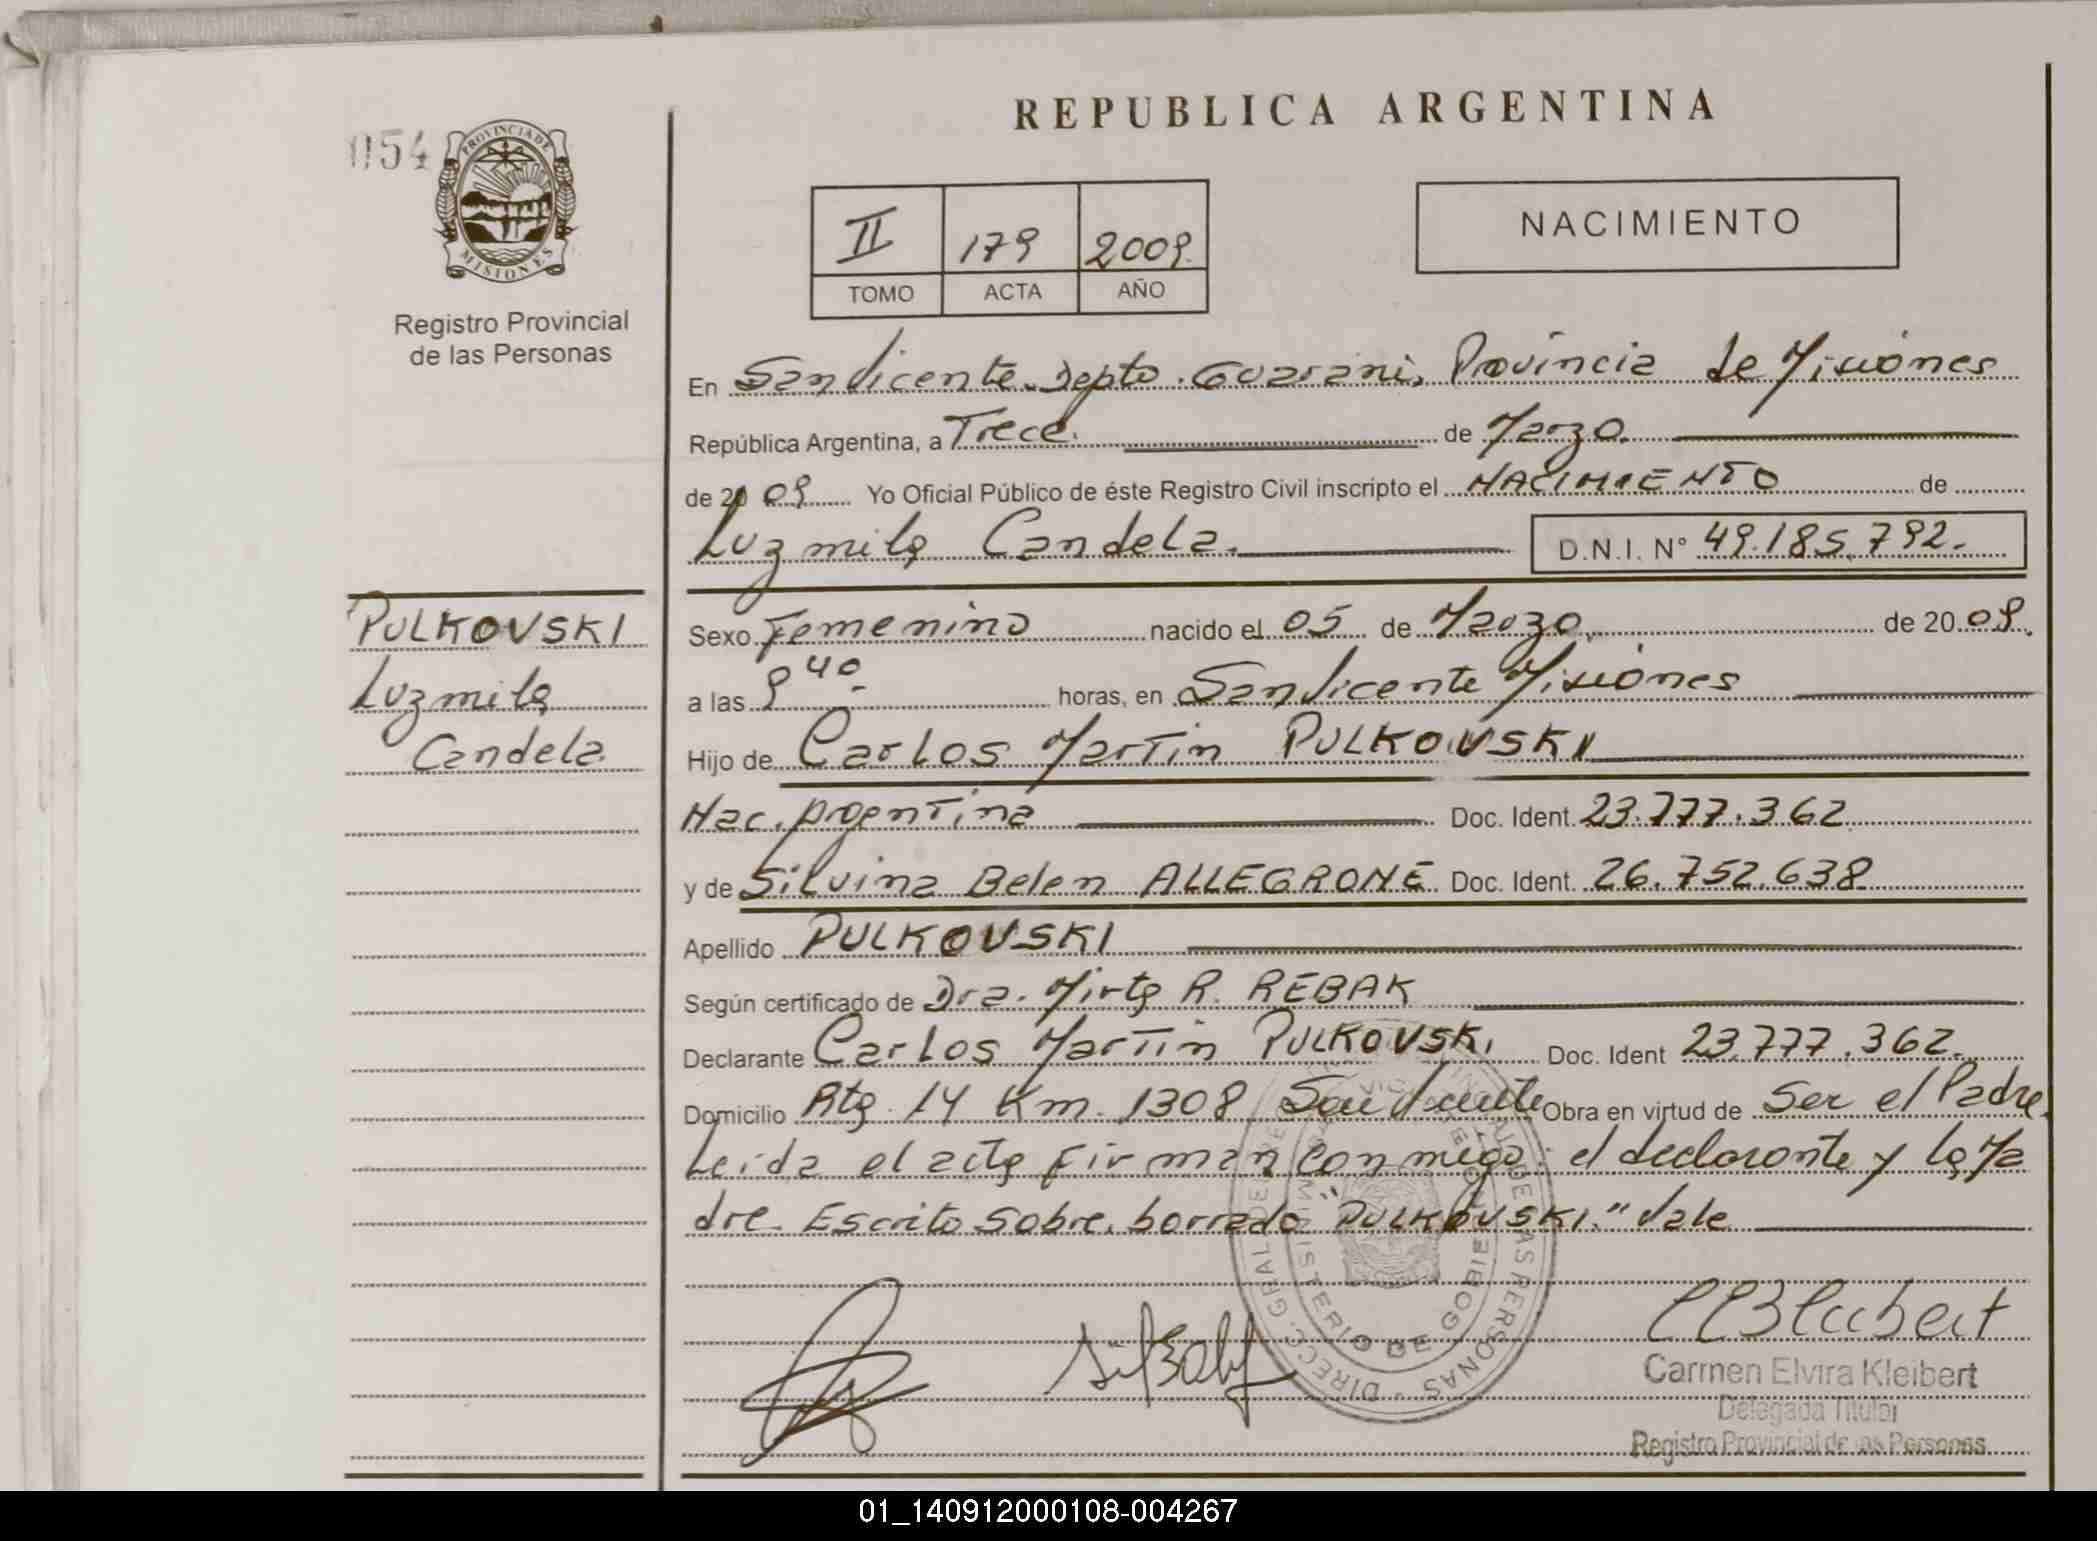 REPUBLICA ARGENTINA
054
PROVINCIA DE
MISIONES
Registro Provincial
de las Personas
II 179 2009
TOMO ACTA AÑO
NACIMIENTO
En San Vicente. Depto. Guarani, Provincia de Misiones
República Argentina, a Trece. de Marzo
de 2009 Yo Oficial Público de éste Registro Civil inscripto el NACIMIENTO de
Luzmila Candela. D.N.I. N° 49.185.792.
PULKOVSKI
Luzmila
Candela
Sexo Femenino nacido el 05 de Marzo de 2009.
a las 9 40 horas, en San Vicente Misiones
Hijo de Carlos Martin PULKOVSKI
Nac. Argentina Doc. Ident. 23.777.362
y de Silvina Belen ALLEGRONE Doc. Ident. 26.752.638
Apellido PULKOVSKI
Según certificado de Dra. Mirta R. REBAK
Declarante Carlos Martin PULKOVSKI Doc. Ident 23.777.362
Domicilio Rta. 14 Km. 1308 San Vicente Obra en virtud de Ser el Padre.
Leida el acta firman conmigo: el declarante y la Ma
dre. Escrito sobre borrado "PULKOVSKI." Vale
MINISTERIO DE GOBIERNO
Carmen Elvira Kleibert
Delegada Titular
Registro Provincial de las Personas
01_140912000108-004267